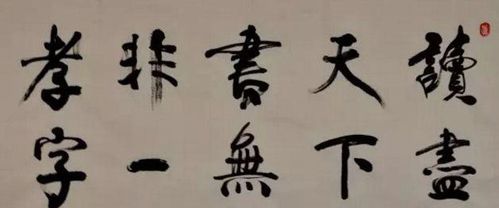 讀盡
天下
書無
非一
孝字